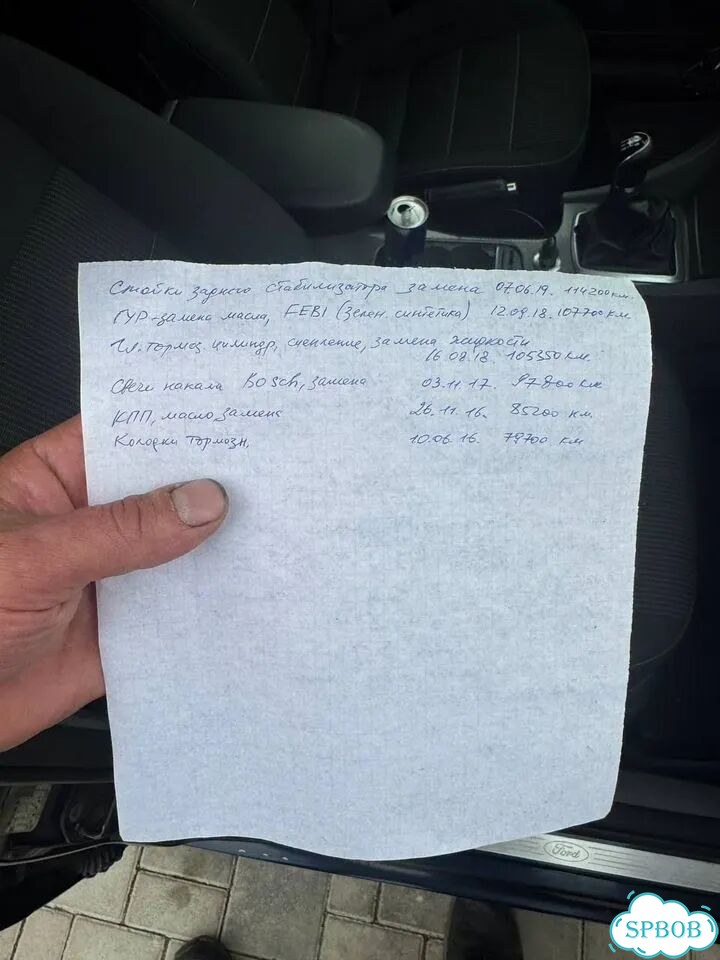 Стойки заднего стабилизатора замена 07.06.19. 114200 км.
ГУР-замена масла, FEBI (зелен. синтетика) 12.09.18. 107700 км
Гл. тормоз. цилиндр, сцепление, замена жидкости
16.08.18. 105350 км.
Свечи накала Bosch, замена 03.11.17. 97800 км
КПП, масло замена 26.11.16. 85200 км.
Колодки тормозн, 10.06.16. 79700 км
Ford
SPBOB